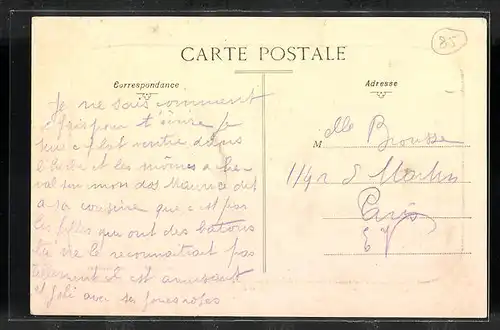 85
CARTE POSTALE
Correspondance
Adresse
Je ne sais comment
je fais pour t'écrire je
suis à plat ventre dans
l'herbe et les mômes à che-
val sur mon dos Maurice dit
à sa cousine que c'est pas
les filles qui ont des batons
tu ne le reconnaitrait pas
tellement il est amusant
et joli avec ses joues roses
Mlle Brousse
114 r St Martin
Paris